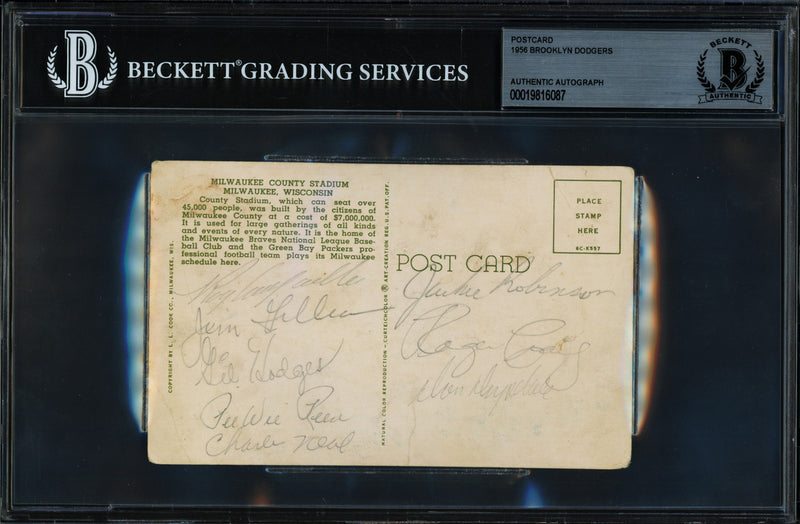 BECKETT® GRADING SERVICES
POSTCARD
1956 BROOKLYN DODGERS
AUTHENTIC AUTOGRAPH
00019816087
BECKETT
B
AUTHENTIC
B
MILWAUKEE COUNTY STADIUM
MILWAUKEE, WISCONSIN
County Stadium, which can seat over
45,000 people, was built by the citizens of
Milwaukee County at a cost of $7,000,000.
It is used for large gatherings of all kinds
and events of every nature. It is the home of
the Milwaukee Braves National League Base-
ball Club and the Green Bay Packers pro-
fessional football team plays its Milwaukee
schedule here.
COPYRIGHT BY L. L. COOK CO., MILWAUKEE, WIS.
NATURAL COLOR REPRODUCTION - CURTEICHCOLOR ® ART-CREATION REG. U.S. PAT. OFF.
PLACE
STAMP
HERE
6C-K557
POST CARD
Roy Campanella
Jim Gilliam
Gil Hodges
Pee Wee Reese
Charlie Neal
Jackie Robinson
Roger Craig
Don Drysdale